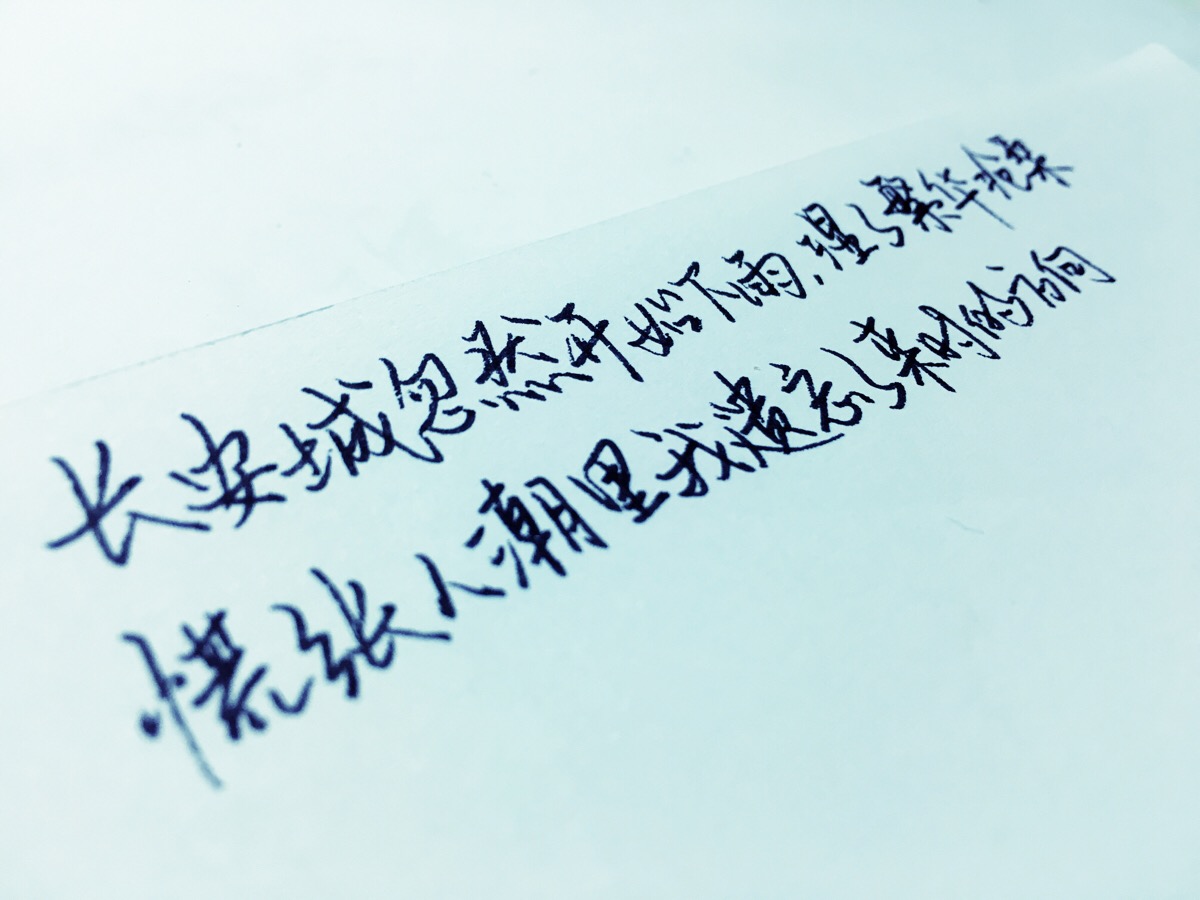 长安城忽然开始下雨,湿了繁华沧桑
慌张人潮里我遗忘了来时的方向